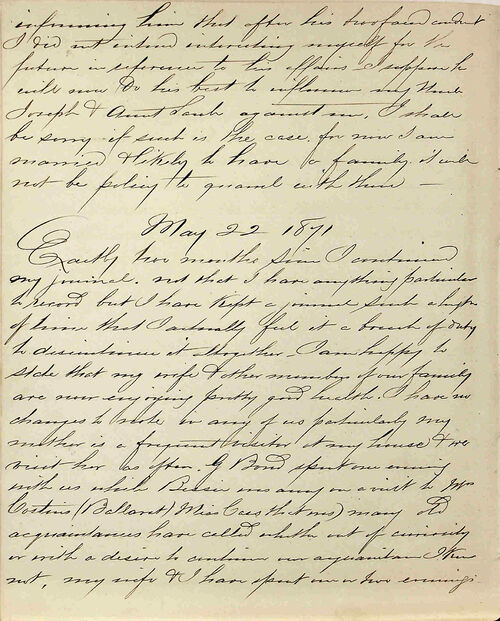 informing him that after his twofaced conduct
I did not intend interesting myself for the
future in reference to his affairs I suppose he
will now do his best to influence my Uncle
Joseph & Aunt Sarah against me, I shall
be sorry if such is the case for now I am
married & likely to have a family it will
not be policy to quarrel with them —
May 22 1871
Exactly two months since I continued
my journal. not that I have anything particular
to record but I have kept a journal such a length
of time that I actually feel it a breach of duty
to discontinue it altogether. I am happy to
state that my wife & other members of our family
are now enjoying pretty good health. I have no
changes to note in any of us particularly my
mother is a frequent visitor at my house & we
visit her as often. G Bond spent one evening
with us while Bessie was away on a visit to Mrs
(Ballarat) Miss that was) many old
acquaintances have called whether out of curiosity
or with a desire to continue our acquaintance I know
not, my wife & I have spent one or two evenings